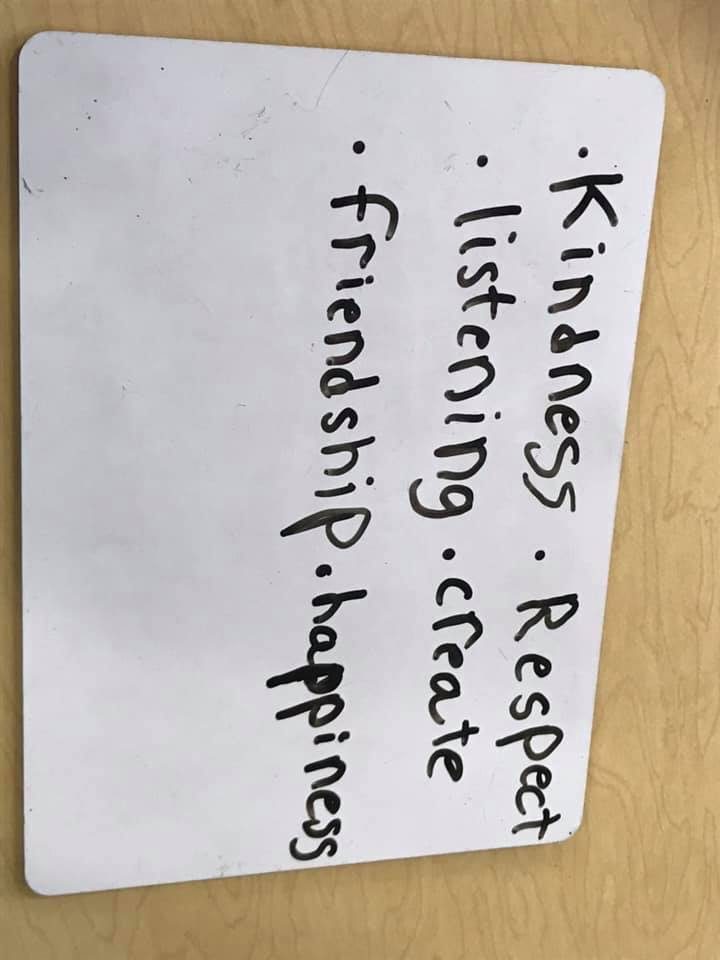 ·Kindness ·Respect
·listening ·create
·friendship ·happiness